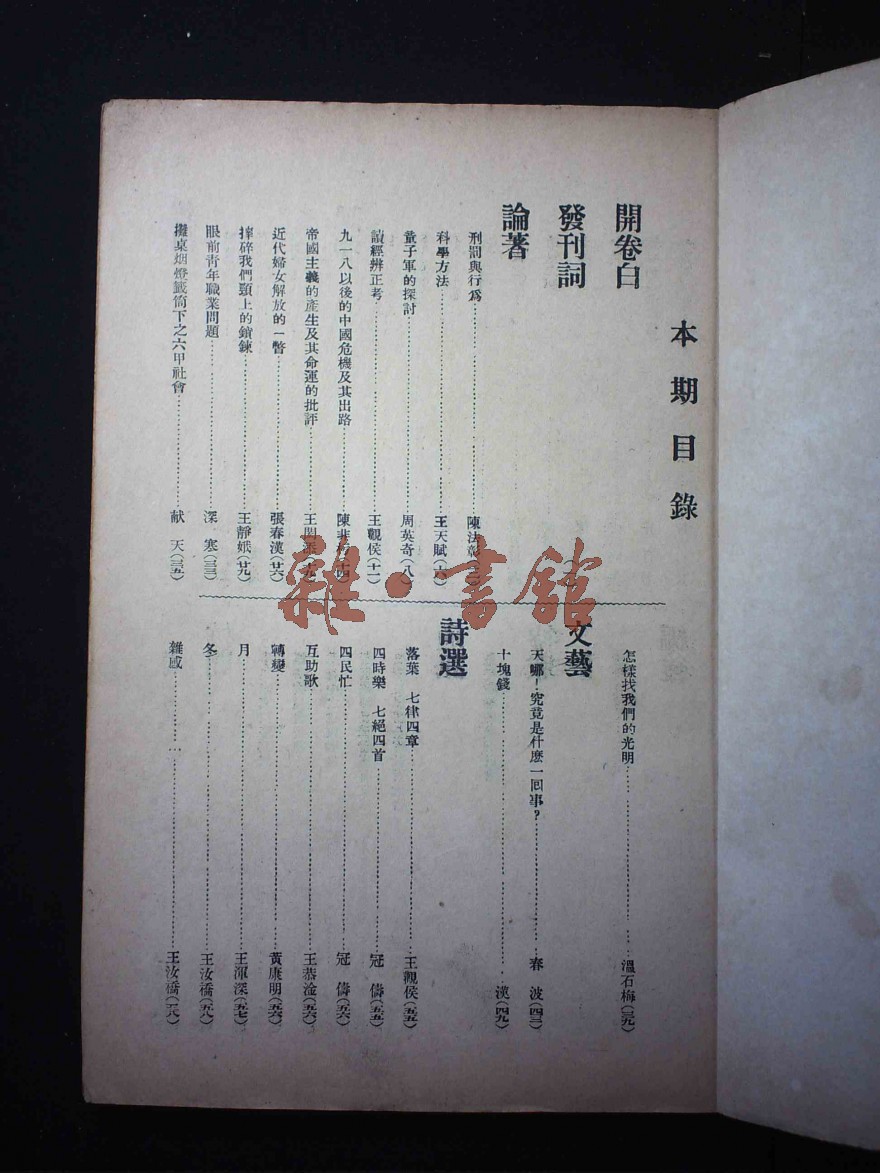 本期目錄
開卷白
發刊詞
論著
刑罰與行為……陳法彰(一)
科學方法……王天賦(六)
童子軍的探討……周英奇(八)
讀經辨正考……王觀侯(十一)
九一八以後的中國危機及其出路……陳非
帝國主義的產生及其命運的批評……王
近代婦女解放的一瞥……張春漢(廿六)
摔碎我們頸上的鎖鍊……王靜娥(廿九)
眼前青年職業問題……深寒(三三)
攤桌烟燈籤筒下之六甲社會……献天(三五)
怎樣找我們的光明……溫石梅(三九)
文藝
天哪!究竟是什麽一回事?……春波(四三)
十塊錢……漢(四九)
詩選
落葉 七律四章……王觀侯(五五)
四時樂 七絕四首……冠儔(五五)
四民忙……冠儔(五六)
互助歌……王恭淦(五六)
轉變……黃康明(五六)
月……王渾深(五七)
冬……王汝橋(五八)
雜感……王汝橋(五八)
雜·書館